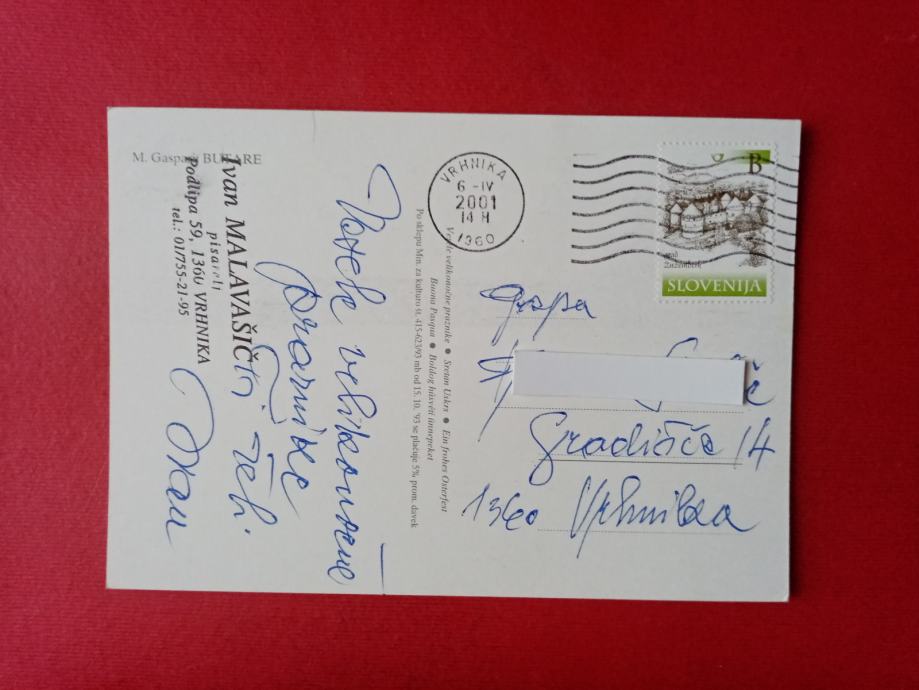 M. Gaspari: BUTARE
Ivan MALAVAŠIČ
pisatelj
Podlipa 59, 1360 VRHNIKA
tel.: 01/755-21-95
Vesele velikonočne
praznike
ti želi
Ivan
Vesele velikonočne praznike ● Sretan Uskrs ● Ein frohes Osterfest
Buona Pasqua ● Boldog húsvéti ünnepeket
Po sklepu Min. za kulturo št. 415-623/93 mb od 15. 10. '93 se plačuje 5% prom. davek
VRHNIKA
6 -IV
2001
14 H
1360
B
grad
Žužemberk
SLOVENIJA
gospa
Gradišče 14
1360 Vrhnika